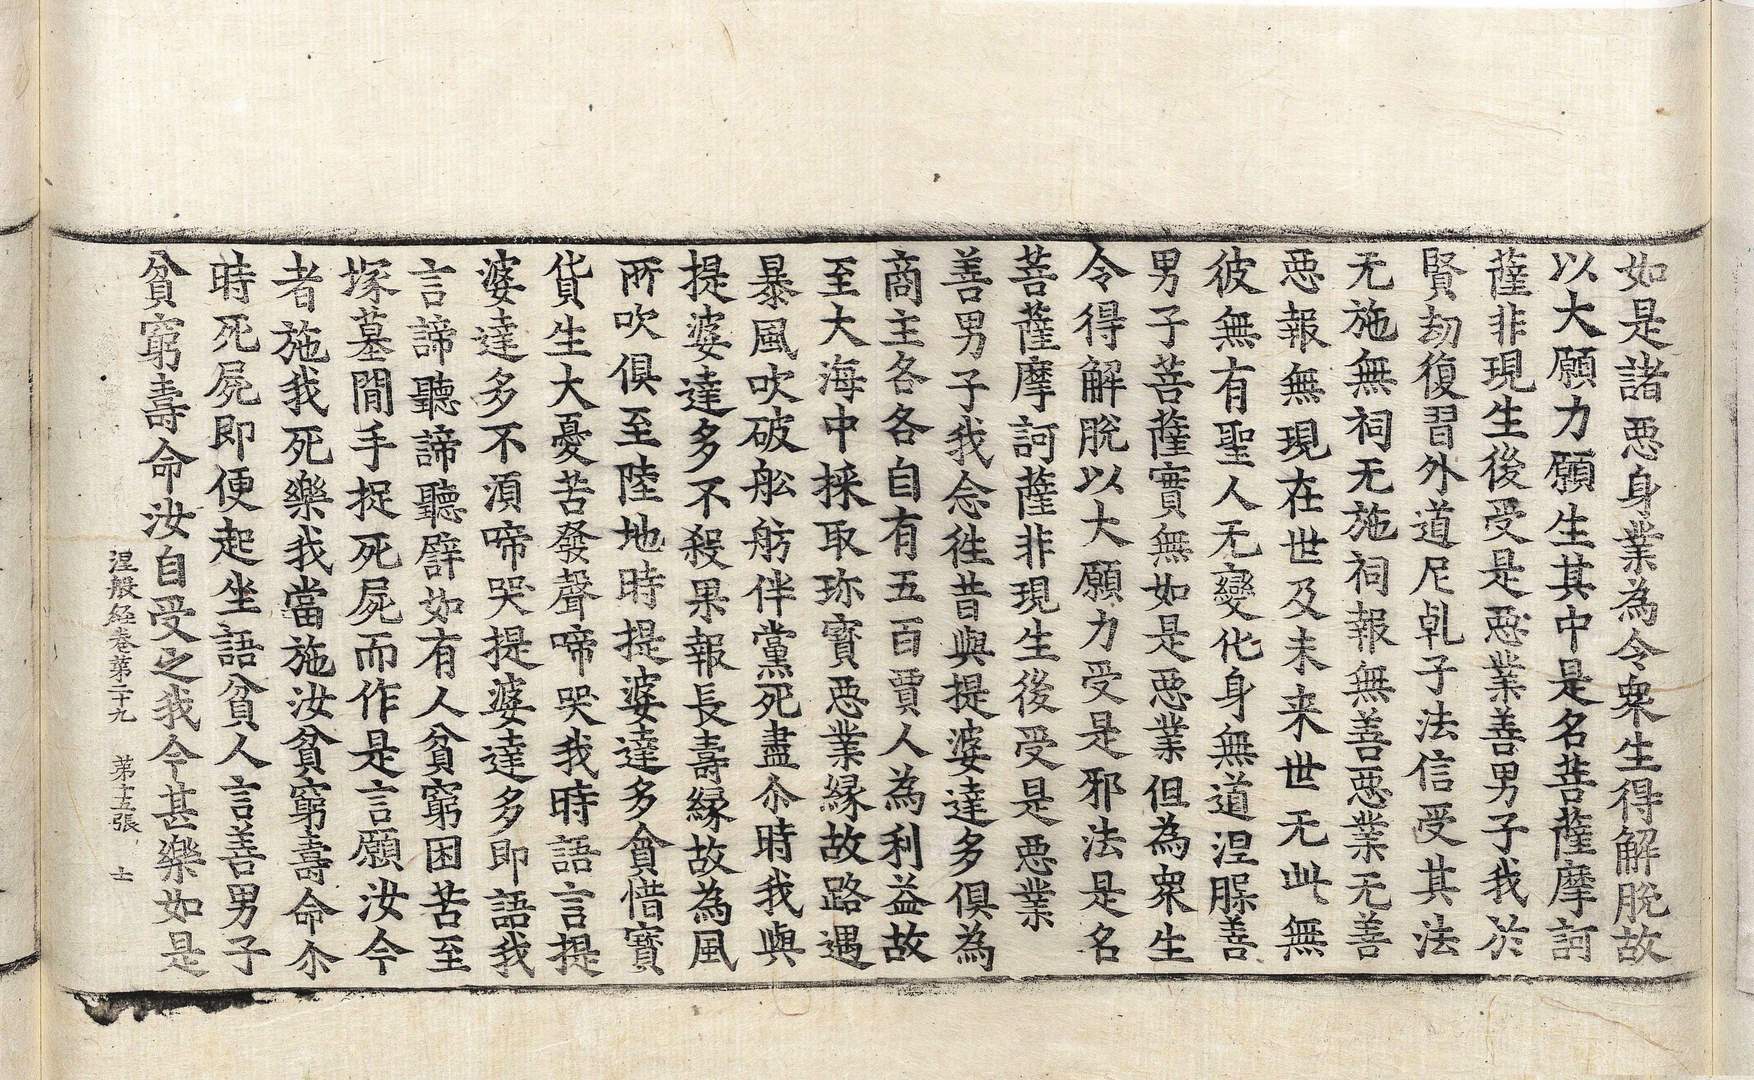 如是諸惡身業為令衆生得解脫故
以大願力願生其中是名菩薩摩訶
薩非現生後受是惡業善男子我於
賢劫復習外道尼乹子法信受其法
无施無祠无施祠報無善惡業无善
惡報無現在世及未来世无此無
彼無有聖人无變化身無道涅槃善
男子菩薩實無如是惡業但為衆生
令得解脫以大願力受是邪法是名
菩薩摩訶薩非現生後受是惡業
善男子我念徃昔與提婆達多俱為
商主各各自有五百賈人為利益故
至大海中採取珎寳惡業縁故路遇
暴風吹破舩舫伴黨死盡尒時我與
提婆達多不殺果報長壽縁故為風
所吹俱至陸地時提婆達多貪惜寳
貨生大憂苦發聲啼哭我時語言提
婆達多不湏啼哭提婆達多即語我
言諦聽諦聽譬如有人貧窮困苦至
塚墓間手捉死屍而作是言願汝今
者施我死樂我當施汝貧窮壽命尒
時死屍即便起坐語貧人言善男子
貧窮壽命汝自受之我今甚樂如是
涅般經卷第二十九 第十五張 士